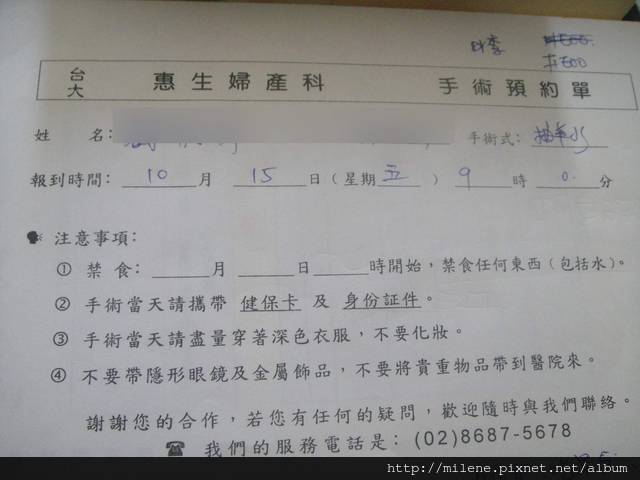 #600
台大 惠生婦產科 手術預約單
姓 名: 手術式: 抽羊水
報到時間: 10 月 15 日(星期 五 ) 9 時 0 分
注意事項:
① 禁 食: 月 日 時開始,禁食任何東西(包括水)。
② 手術當天請攜帶 健保卡 及 身份証件 。
③ 手術當天請盡量穿著深色衣服,不要化妝。
④ 不要帶隱形眼鏡及金屬飾品,不要將貴重物品帶到醫院來。
謝謝您的合作,若您有任何的疑問,歡迎隨時與我們聯絡。
☎ 我們的服務電話是: (02)8687-5678
http://milene.pixnet.net/album